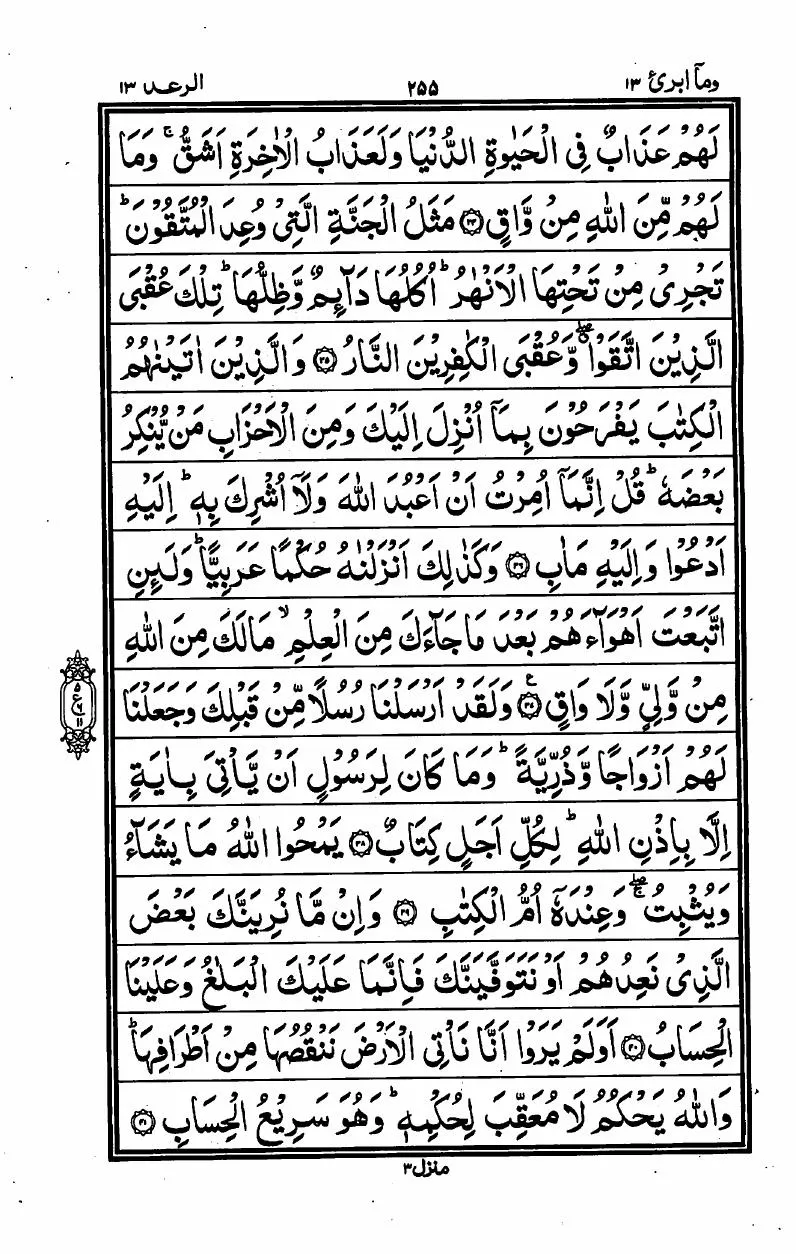 وماۤ ابرئ ١٣
٢٥٥
الرعد ١٣
لَهُمْ عَذَابٌ فِي الْحَيٰوةِ الدُّنْيَا وَلَعَذَابُ الْاٰخِرَةِ اَشَقُّ ۚ وَمَا
لَهُمْ مِّنَ اللّٰهِ مِنْ وَّاقٍ ۝٣٤ مَثَلُ الْجَنَّةِ الَّتِيْ وُعِدَ الْمُتَّقُوْنَ ؕ
تَجْرِيْ مِنْ تَحْتِهَا الْاَنْهٰرُ ؕ اُكُلُهَا دَآىِٕمٌ وَّظِلُّهَا ؕ تِلْكَ عُقْبَى
الَّذِيْنَ اتَّقَوْا ۖۗ وَّعُقْبَى الْكٰفِرِيْنَ النَّارُ ۝٣٥ وَالَّذِيْنَ اٰتَيْنٰهُمُ
الْكِتٰبَ يَفْرَحُوْنَ بِمَاۤ اُنْزِلَ اِلَيْكَ وَمِنَ الْاَحْزَابِ مَنْ يُّنْكِرُ
بَعْضَهٗ ؕ قُلْ اِنَّمَاۤ اُمِرْتُ اَنْ اَعْبُدَ اللّٰهَ وَلَاۤ اُشْرِكَ بِهٖ ؕ اِلَيْهِ
اَدْعُوْا وَاِلَيْهِ مَاٰبِ ۝٣٦ وَكَذٰلِكَ اَنْزَلْنٰهُ حُكْمًا عَرَبِيًّا ؕ وَلَىِٕنِ
اتَّبَعْتَ اَهْوَآءَهُمْ بَعْدَ مَا جَآءَكَ مِنَ الْعِلْمِ ۙ مَا لَكَ مِنَ اللّٰهِ
مِنْ وَّلِيٍّ وَّلَا وَاقٍ ۝٣٧ ع وَلَقَدْ اَرْسَلْنَا رُسُلًا مِّنْ قَبْلِكَ وَجَعَلْنَا
٥
ع ٦
١١
لَهُمْ اَزْوَاجًا وَّذُرِّيَّةً ؕ وَمَا كَانَ لِرَسُوْلٍ اَنْ يَّاْتِيَ بِاٰيَةٍ
اِلَّا بِاِذْنِ اللّٰهِ ؕ لِكُلِّ اَجَلٍ كِتَابٌ ۝٣٨ يَمْحُوا اللّٰهُ مَا يَشَآءُ
وَيُثْبِتُ ۖۚ وَعِنْدَهٗۤ اُمُّ الْكِتٰبِ ۝٣٩ وَاِنْ مَّا نُرِيَنَّكَ بَعْضَ
الَّذِيْ نَعِدُهُمْ اَوْ نَتَوَفَّيَنَّكَ فَاِنَّمَا عَلَيْكَ الْبَلٰغُ وَعَلَيْنَا
الْحِسَابُ ۝٤٠ اَوَلَمْ يَرَوْا اَنَّا نَاْتِي الْاَرْضَ نَنْقُصُهَا مِنْ اَطْرَافِهَا ؕ
وَاللّٰهُ يَحْكُمُ لَا مُعَقِّبَ لِحُكْمِهٖ ؕ وَهُوَ سَرِيْعُ الْحِسَابِ ۝٤١
منزل ٣